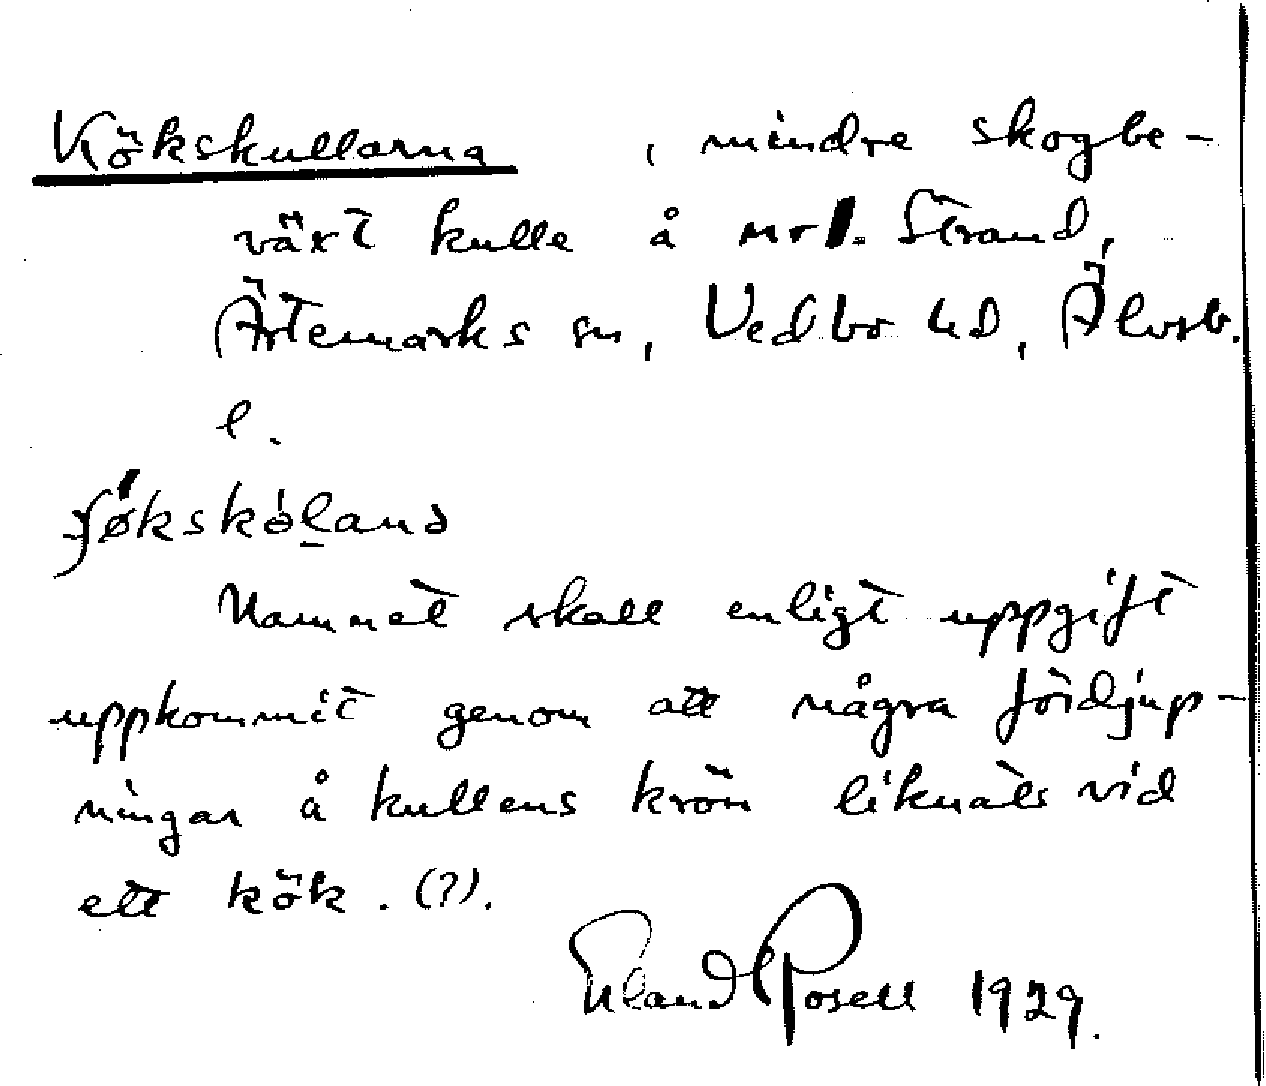 Kökskullarna , mindre skogbe-
växt kulle å Strand,
Ärtemarks sn, Vedbo hd, Älvsb.
l.
Namnet skall enligt uppgift
uppkommit genom att några fördjup-
ningar å kullens krön liknats vid
ett kök. (?).
Erland Rosell 1929.